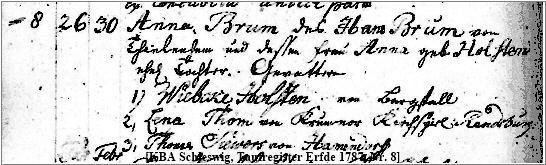 8 26 30 Anna Brum des Hans Brum von
und dessen frau Anna geb Holsten
ehel. Tochter. Gevattern
1) Wiebcke Holsten von Bergstall
2, Lena Thom von Krummor Kirchspiel Rendsburg
3, Thoms Siewers von Hamdorf
Febr
[KBA Schleswig, Taufregister Erfde 1787 Nr. 8]